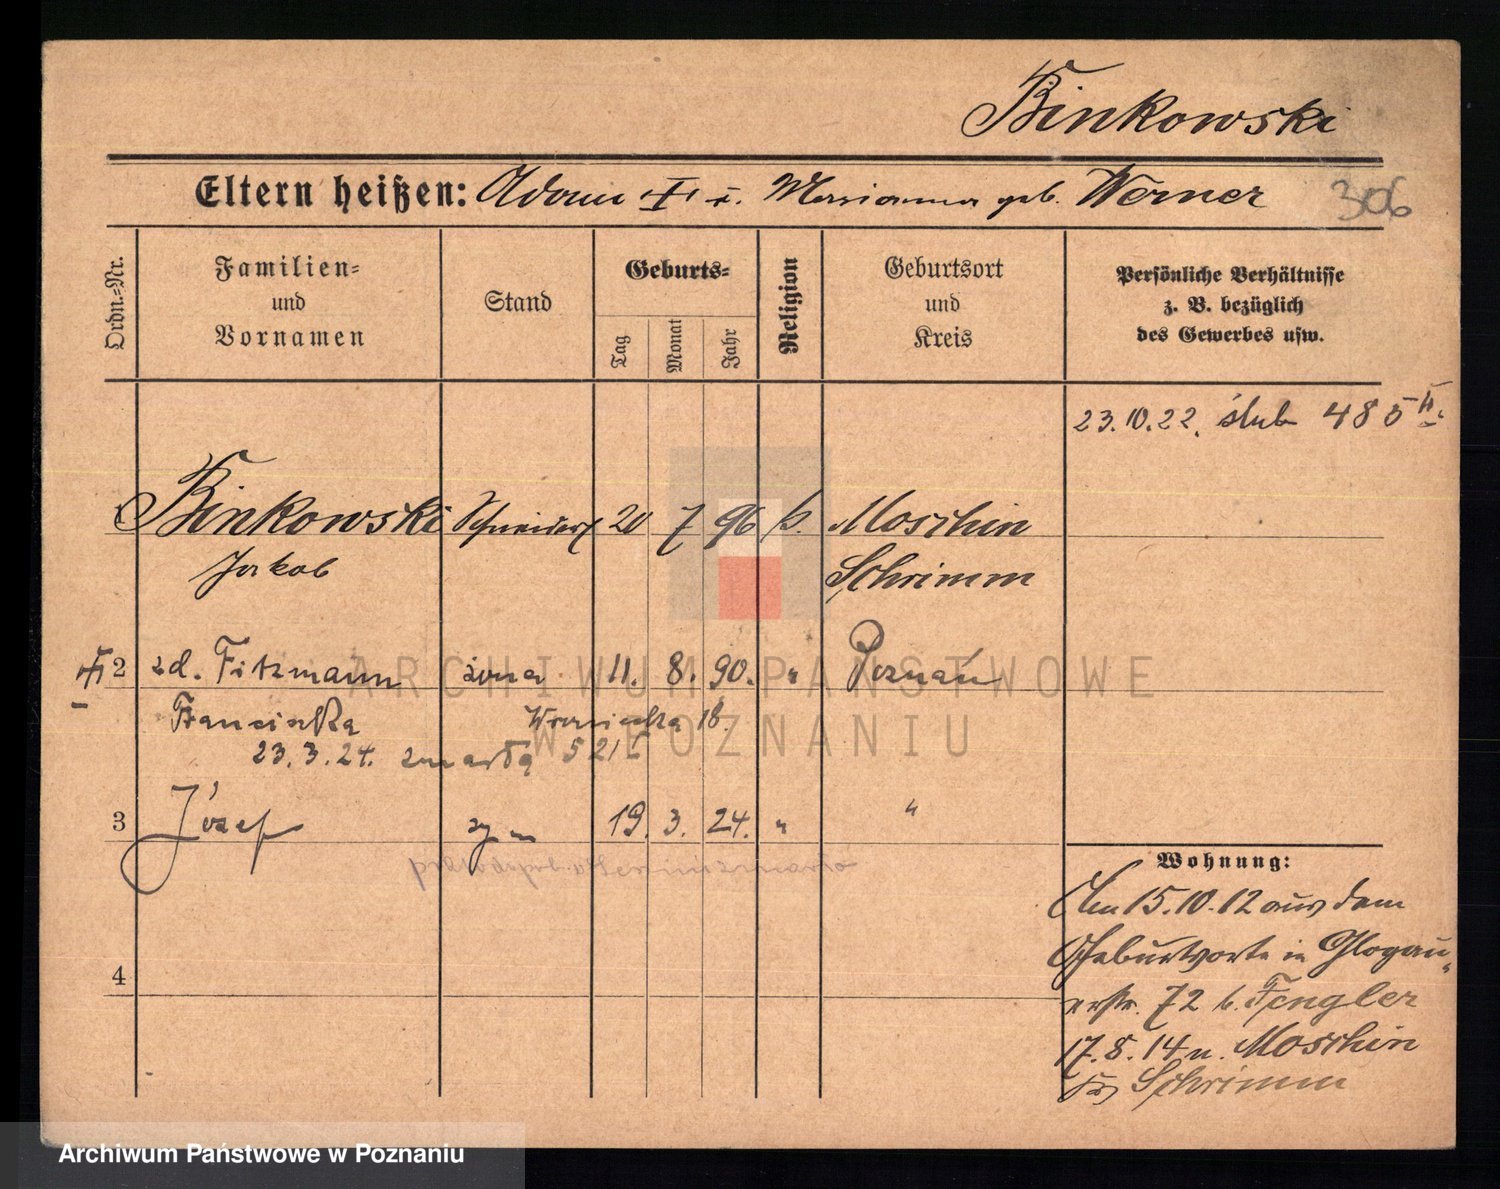 Binkowski
Eltern heißen: Adam † u. Marianna geb. Werner 306
Ordn.=Nr.
Familien=
und
Vornamen
Stand
Geburts=
Tag
Monat
Jahr
Religion
Geburtsort
und
Kreis
Persönliche Verhältnisse
z. B. bezüglich
des Gewerbes usw.
23.10.22. ślub 485 II.
Binkowski Schneider 20 7 96 k. Moschin
Jakob Schrimm
† 2 zd. Fitzmann żona 11. 8. 90. " Poznań
Franciszka 18.
23.3.24. zmarła 521
3 Józef syn 19. 3. 24. " "
4
Wohnung:
Am 15.10.12 aus dem
Geburtsorte in Glogau-
erstr. 72 b. Fengler
17.8.14 n. Moschin
Schrimm
ARCHIWUM PAŃSTWOWE
W POZNANIU
Archiwum Państwowe w Poznaniu